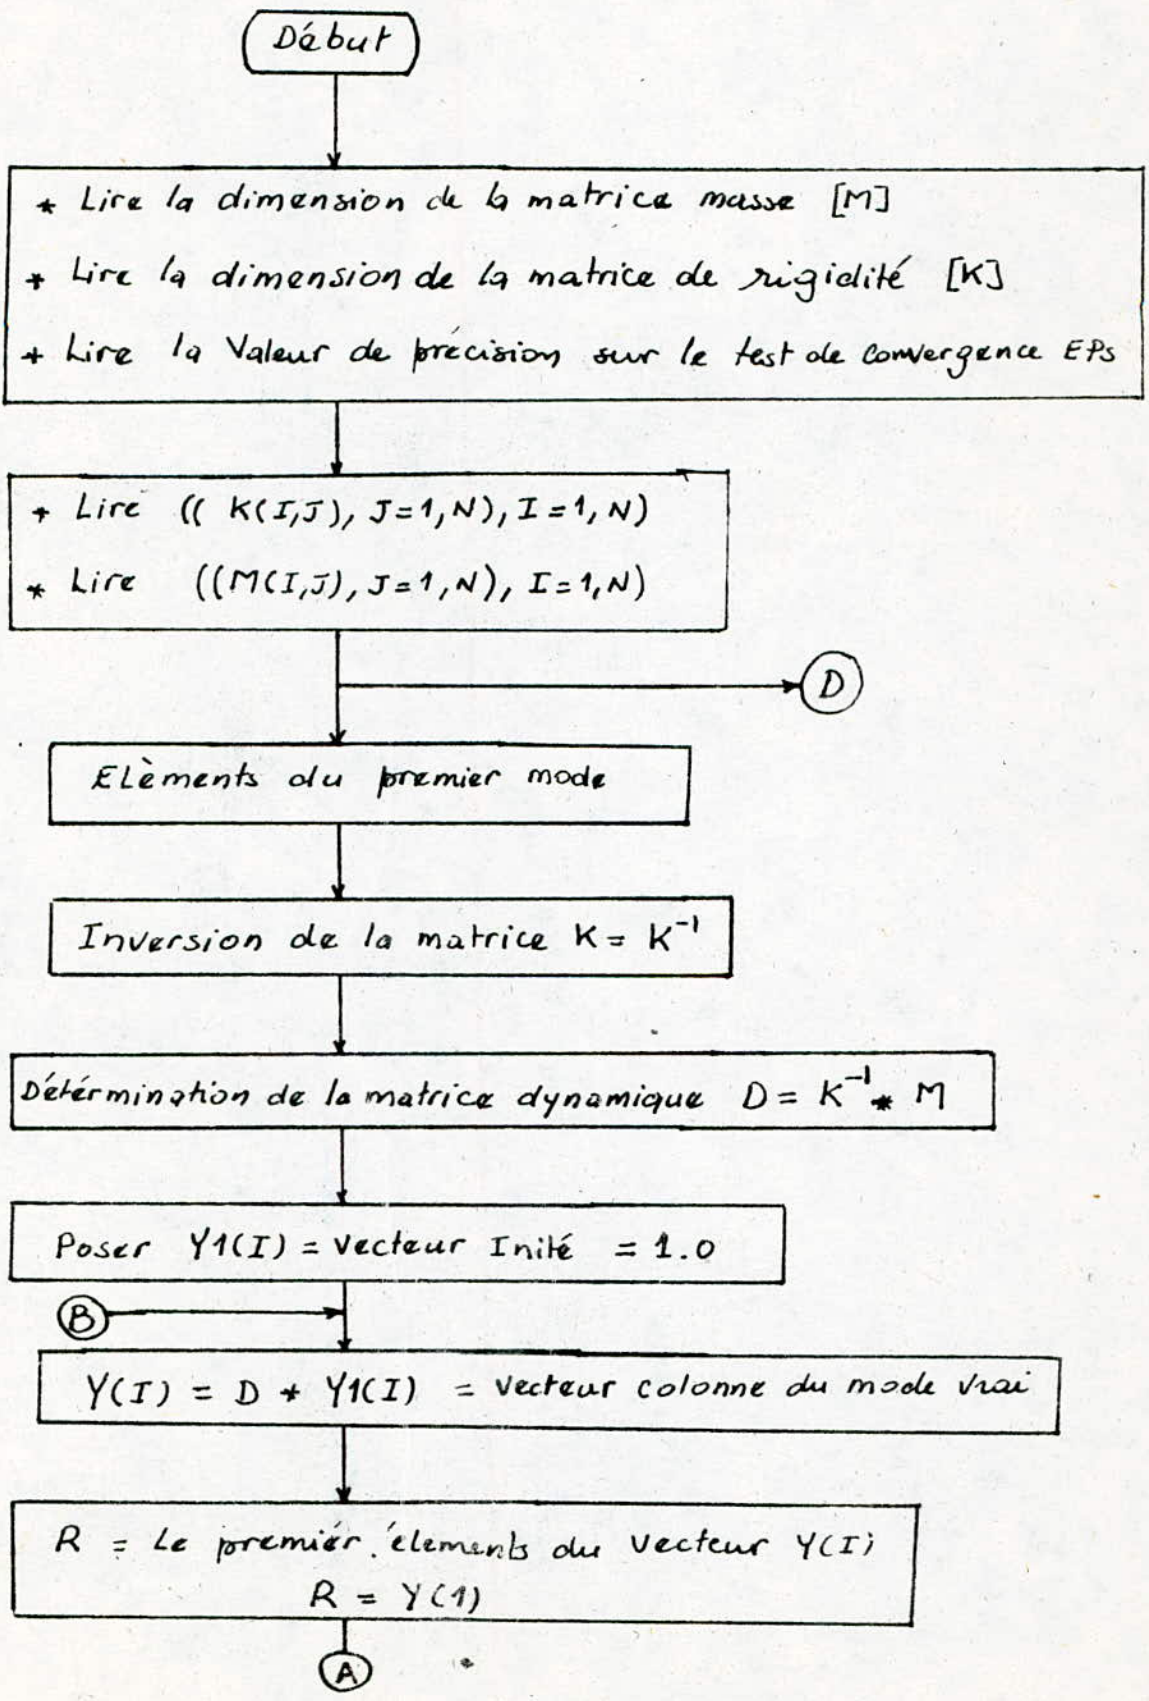 Début
* Lire la dimension de la matrice masse [M]
* Lire la dimension de la matrice de rigidité [K]
* Lire la Valeur de précision sur le test de convergence EPs
* Lire (( K(I,J), J=1,N), I=1,N)
* Lire ((M(I,J), J=1,N), I=1,N)
D
Elèments du premier mode
Inversion de la matrice K = K⁻¹
Détérmination de la matrice dynamique D = K⁻¹ * M
Poser Y1(I) = Vecteur Inité = 1.0
B
Y(I) = D * Y1(I) = Vecteur colonne du mode Vrai
R = Le premiér élements du Vecteur Y(I)
R = Y(1)
A